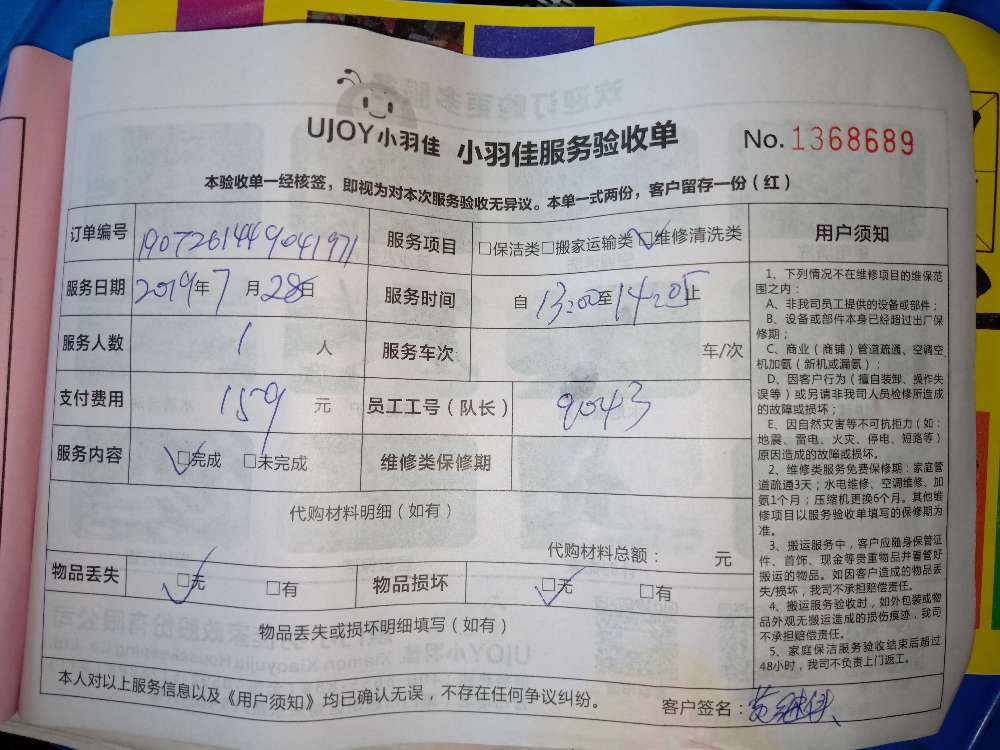 UJOY小羽佳 小羽佳服务验收单 No. 1368689
本验收单一经核签，即视为对本次服务验收无异议。本单一式两份，客户留存一份（红）
订单编号 1907261449041971 服务项目 □保洁类□搬家运输类□维修清洗类
服务日期 2019年7月28日 服务时间 自13:00至14:05止
服务人数 1 人 服务车次 车/次
支付费用 159 元 员工工号（队长） 9043
服务内容 □完成 □未完成 维修类保修期
代购材料明细（如有）
代购材料总额： 元
物品丢失 □无 □有 物品损坏 □无 □有
物品丢失或损坏明细填写（如有）
本人对以上服务信息以及《用户须知》均已确认无误，不存在任何争议纠纷。
客户签名：
用户须知
1、下列情况不在维修项目的维保范
围之内：
A、非我司员工提供的设备或部件；
B、设备或部件本身已经超过出厂保
修期；
C、商业（商铺）管道疏通、空调空
机加氨（新机或漏氨）；
D、因客户行为（擅自装卸、操作失
误等）或另请非我司人员检修所造成
的故障或损坏；
E、因自然灾害等不可抗拒力（如：
地震、雷电、火灾、停电、短路等）
原因造成的故障或损坏。
2、维修类服务免费保修期：家庭管
道疏通3天；水电维修、空调维修、加
氨1个月；压缩机更换6个月。其他维
修项目以服务验收单填写的保修期为
准。
3、搬运服务中，客户应随身保管证
件、首饰、现金等贵重物品并看管好
搬运的物品。如因客户造成的物品丢
失/损坏，我司不承担赔偿责任。
4、搬运服务验收时，如外包装或物
品外观无搬运造成的损伤痕迹，我司
不承担赔偿责任。
5、家庭保洁服务验收结束后超过
48小时，我司不负责上门返工。